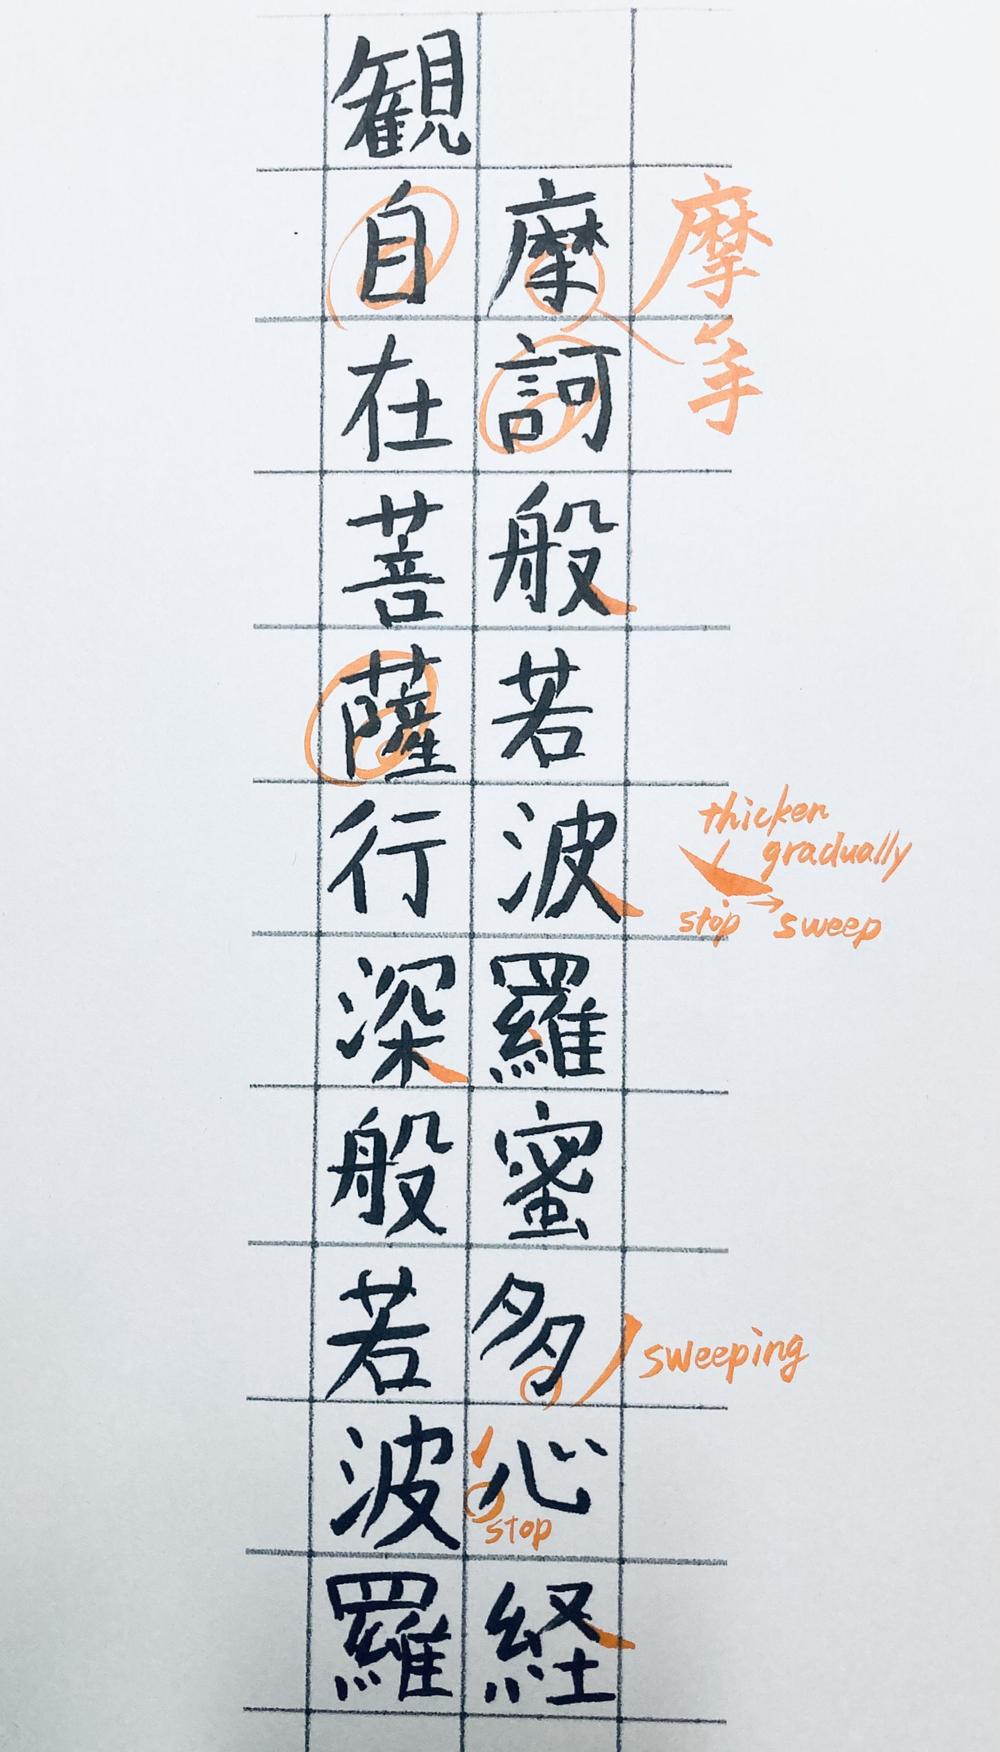 摩訶般若波羅蜜多心経
観自在菩薩行深般若波羅
摩
手
thicken
gradually
stop
sweep
sweeping
stop